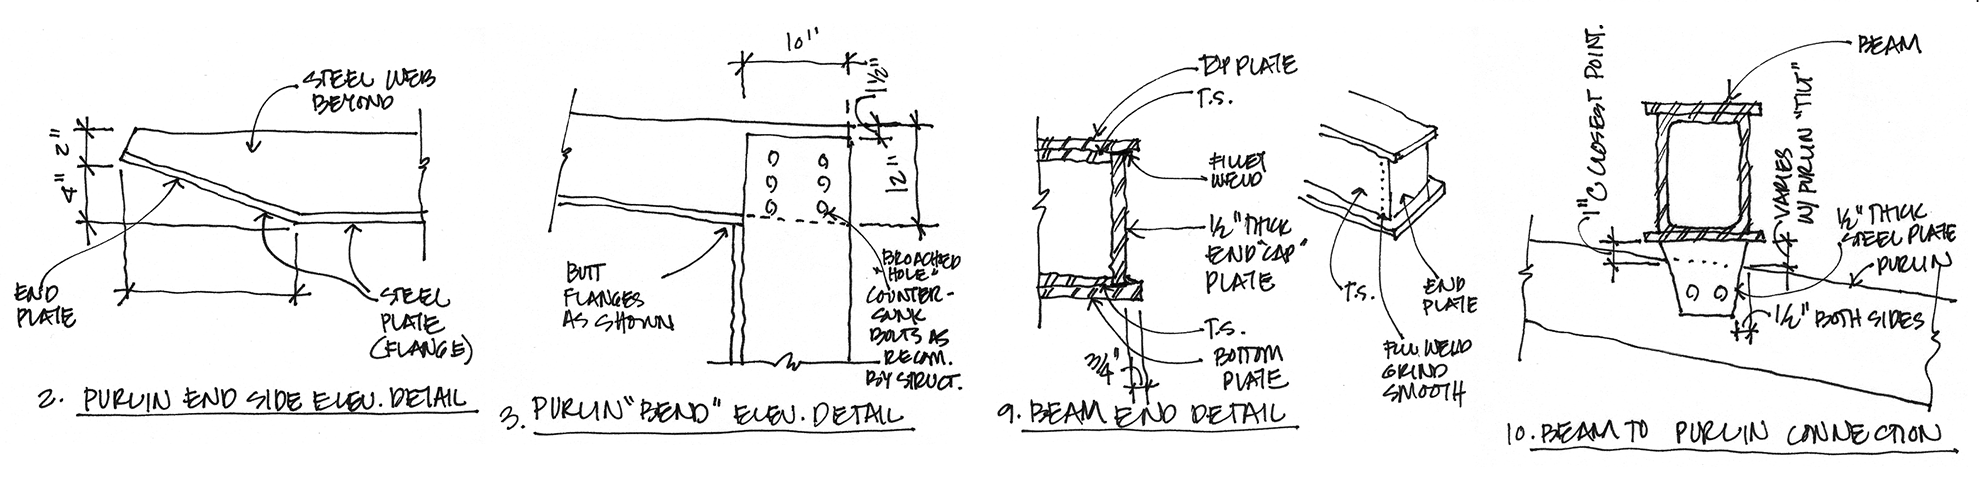 STEEL WEB
BEYOND
2"
4"
END
PLATE
STEEL
PLATE
(FLANGE)
2. PURLIN END SIDE ELEV. DETAIL
10"
1½"
12"
BUTT
FLANGES
AS SHOWN
BROACHED
"HOLE"
COUNTER-
SUNK
BOLTS AS
RECOM.
BY STRUCT.
3. PURLIN "BEND" ELEV. DETAIL
TOP PLATE
T.S.
FILLET
WELD
½" THICK
END "CAP"
PLATE
T.S.
BOTTOM
PLATE
3/4"
T.S.
END
PLATE
FULL WELD
GRIND
SMOOTH
9. BEAM END DETAIL
1" @ CLOSEST POINT.
BEAM
VARIES
W/ PURLIN "TILT"
½" THICK
STEEL PLATE
PURLIN
1½" BOTH SIDES
10. BEAM TO PURLIN CONNECTION